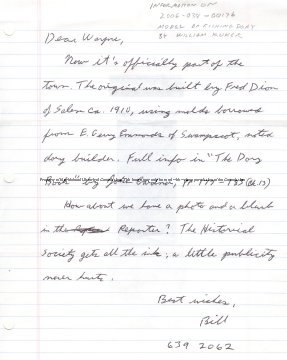 INFORMATION ON
2006-034-00176
MODEL OF FISHING DORY
BY WILLIAM
Dear Wayne,
Now it's officially part of the
town. The original was built by Fred Dion
of Salem ca. 1910, using molds borrowed
from E. Gerry Emmonds of Swampscott, noted
dory builder. Full info in "The Dory
Book" by John Gardner, pp 177-183 (ch. 13)
How about we have a photo and a blurb
in the Reporter? The Historical
Society gets all the ink; a little publicity
never hurts.
Best wishes,
Bill
639 2062